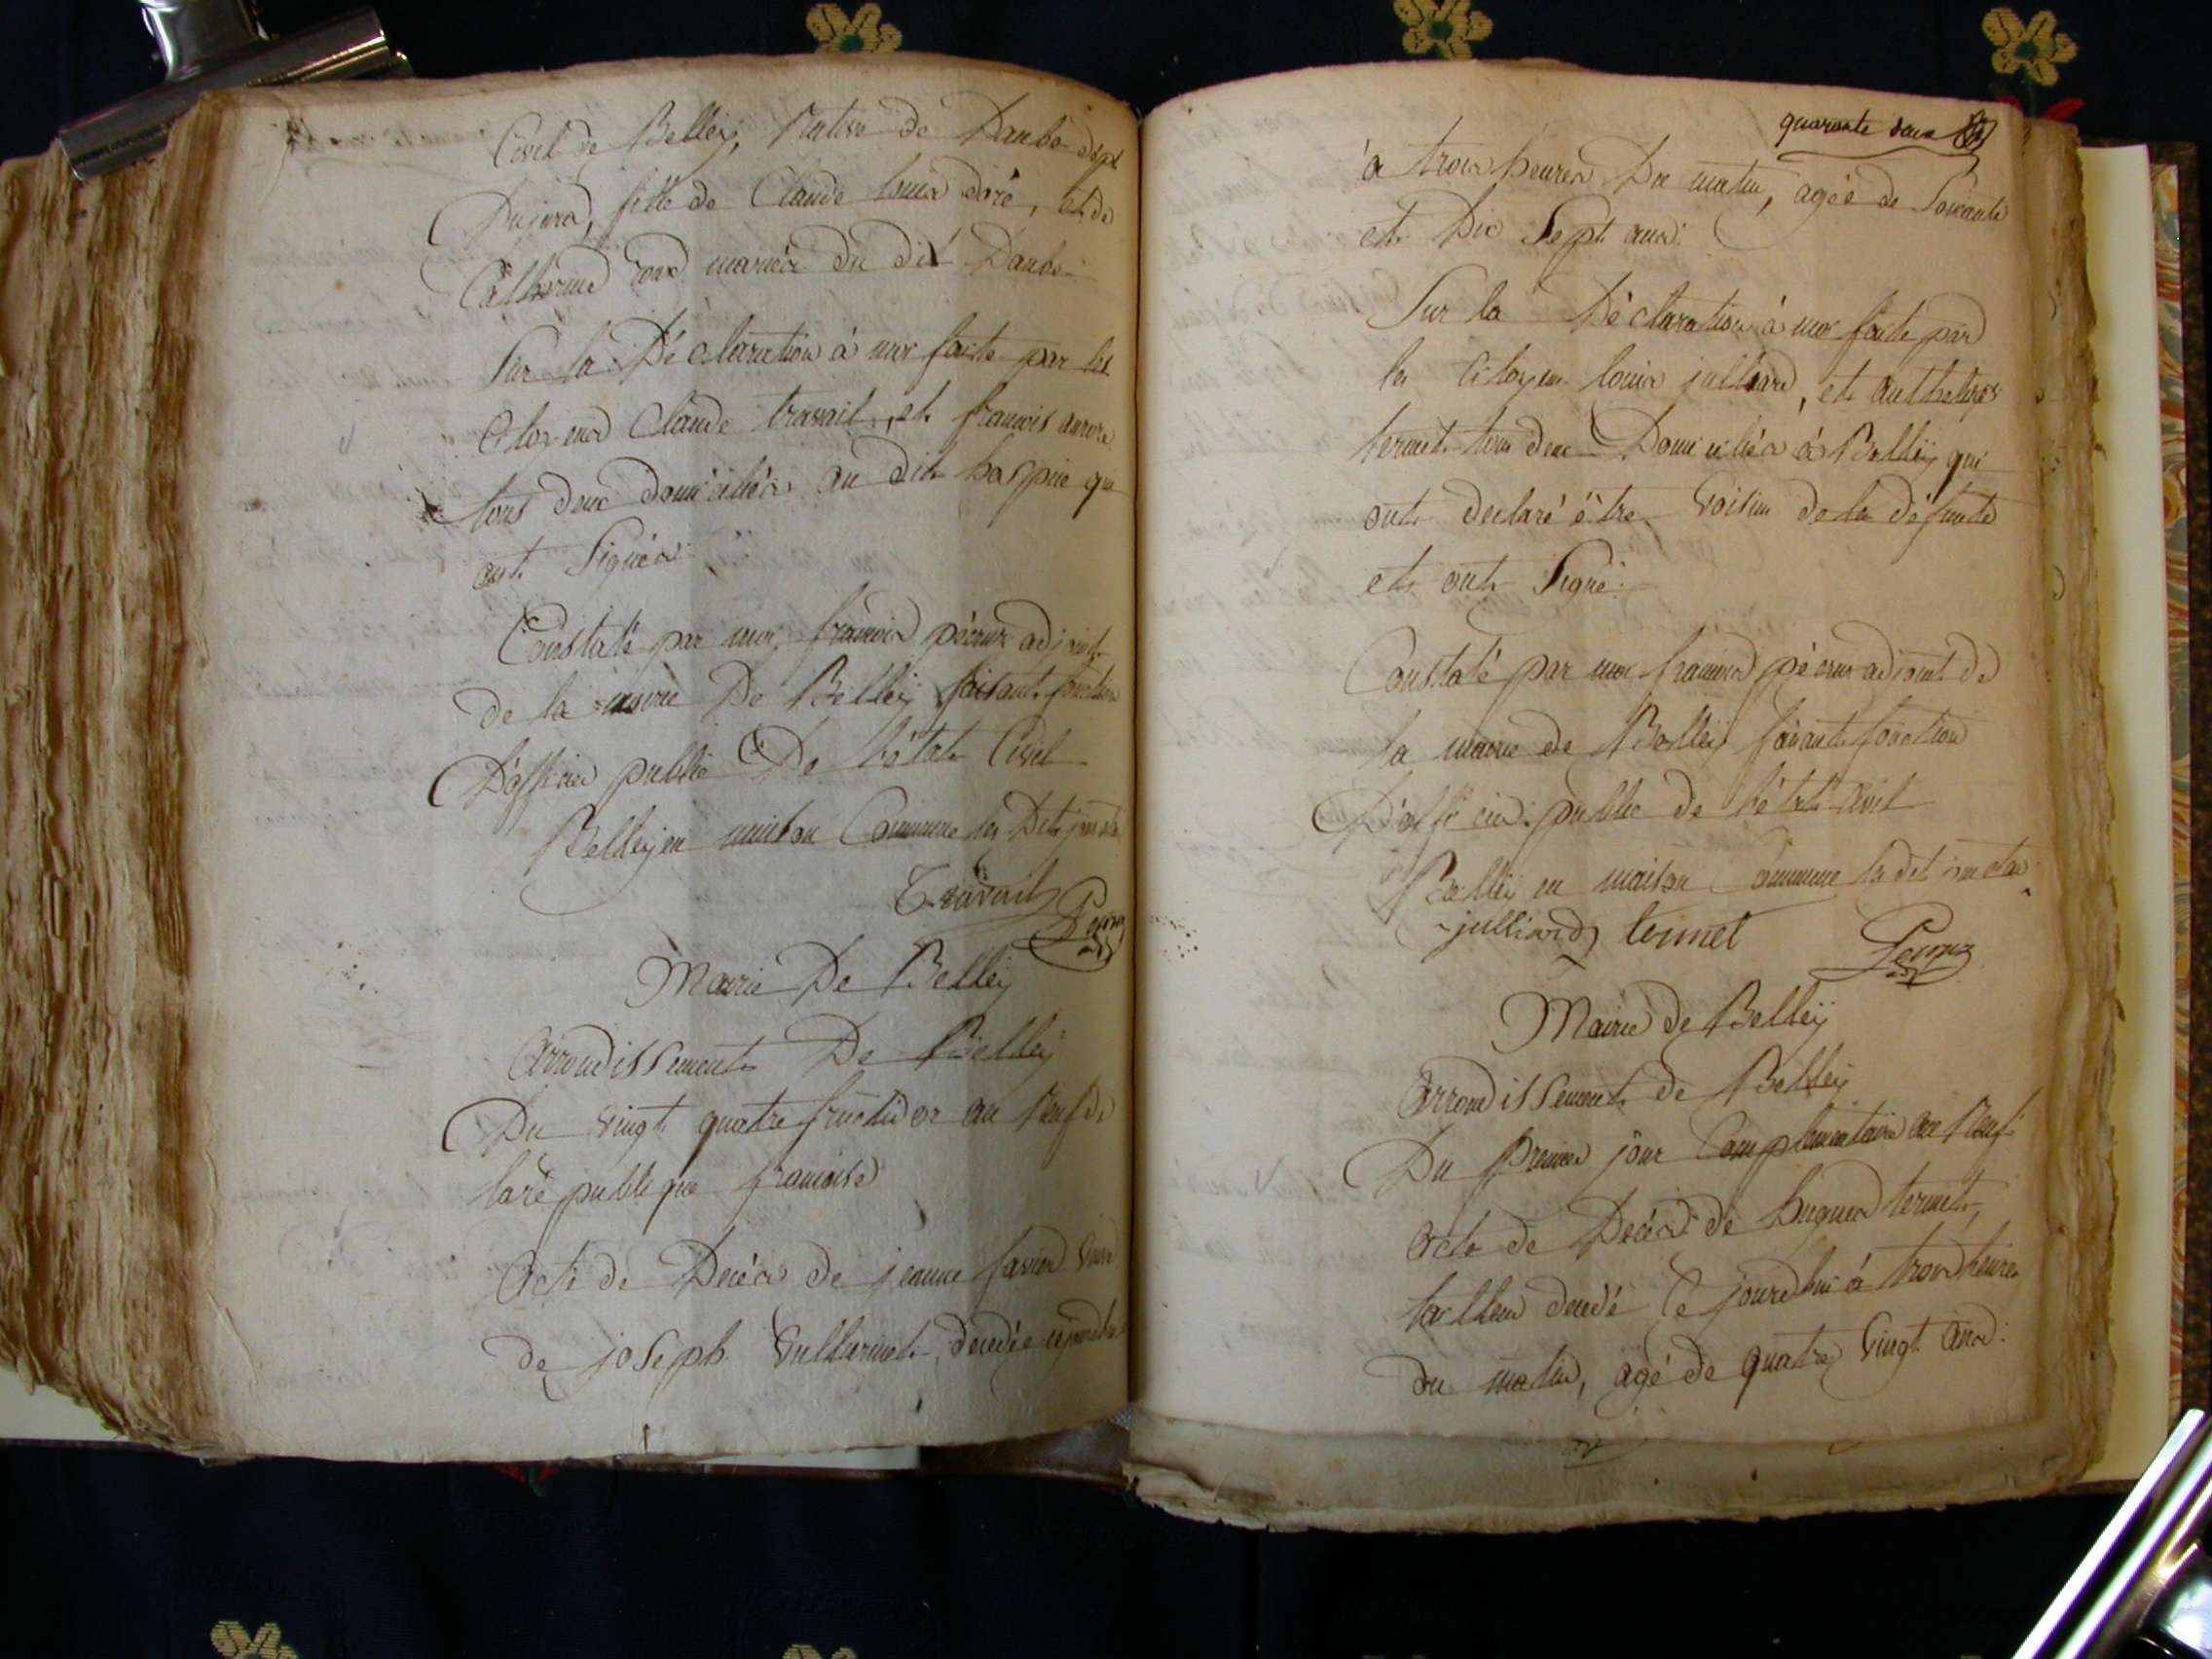 Civil de Belley, Native de Danbo dépt
Dujura, fille de Claude louis doré, et de
Catherine roux mariés du dit Danbo
Sur la Déclaration à moi faite par les
Citoyens Claude travail, et francois aurore
tous deux domiciliés au dit hospice qui
ont Signés
Constaté par moi, francois adjoint
de la mairie De Belley faisant fonction
D'officier public De l'état Civil
Belley en maison Commune les Dits jour et an
Travail
Mairie De Belley
arrondissement De Belley
Du vingt quatre fructidor an Neuf de
la république francoise
Acte de Decés de jeanne favier veuve
de joseph Vuillermet, decedée cejourdhui
quarante deux
à trois heures Du matin, agée de Soixante
et Dix Sept ans.
Sur la Déclaration à moi faite par
les Citoyens louis julliard, et anthelme
termet tous deux Domiciliés à Belley qui
ont declaré être voisins de la défunte
et ont Signé.
Constaté par moi francois adjoint de
la mairie de Belley faisant fonction
D'officier public de l'état civil
Belley en maison Commune les dits jour et an
julliard termet
Mairie de Belley
arrondissement de Belley
Du Premier jour Complémentaire an Neuf
acte de Decés de hugues termet,
tailleur decedé ce jourdhui à trois heures
du matin, agé de quatre vingt ans.